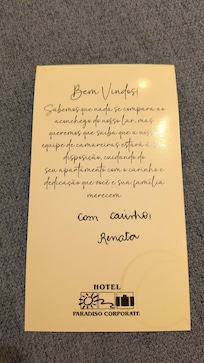 Bem Vindos!
Sabemos que nada se compara ao
aconchego do nosso lar, mas
queremos que saiba que a nossa
equipe de camareiras estará à
disposição, cuidando do
seu apartamento com o carinho e
dedicação que você e sua família
merecem.
com carinho,
Renata
HOTEL
PARADISO CORPORATE